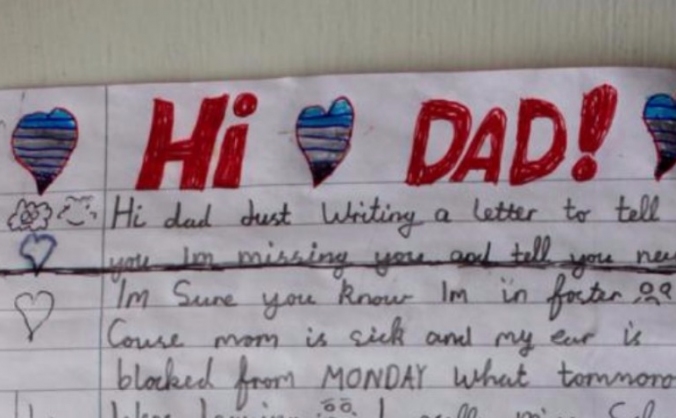 Hi DAD!
Hi dad Just Writing a letter to tell
you Im missing you and tell you
Im Sure you know Im in foster
Couse mom is sick and my ear is
blocked from MONDAY What tommoro